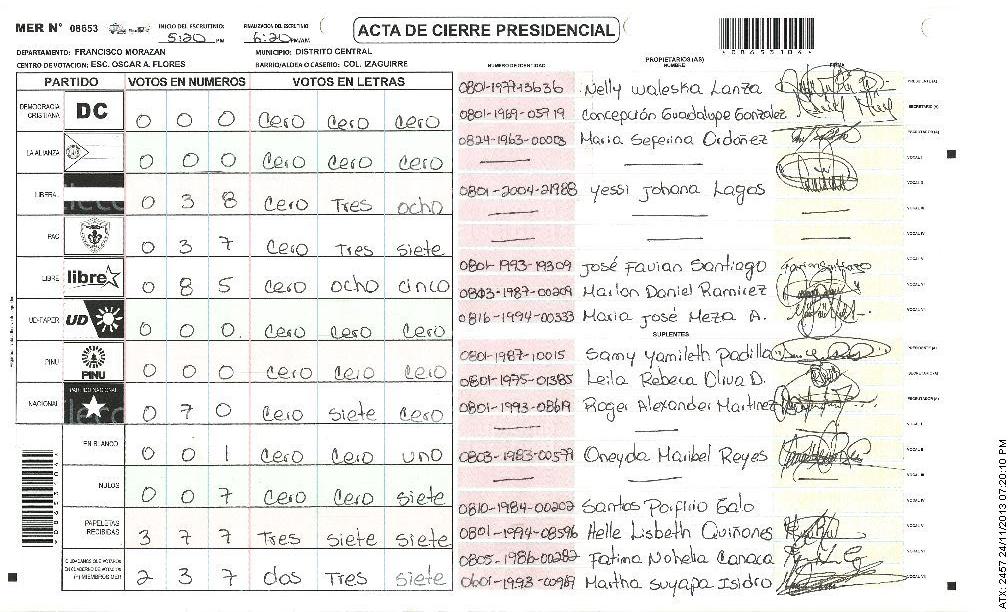 MER N° 08653
INICIO DEL ESCRUTINIO: 5:20 PM
FINALIZACION DEL ESCRUTINIO 6:20 PM/AM
ACTA DE CIERRE PRESIDENCIAL
DEPARTAMENTO: FRANCISCO MORAZAN
MUNICIPIO: DISTRITO CENTRAL
CENTRO DE VOTACION: ESC. OSCAR A. FLORES
BARRIO/ALDEA O CASERIO: COL. IZAGUIRRE
PARTIDO VOTOS EN NUMEROS VOTOS EN LETRAS
DEMOCRACIA CRISTIANA DC 0 0 0 Cero Cero Cero
LA ALIANZA 0 0 0 Cero Cero Cero
LIBERAL 0 3 8 Cero Tres ocho
PAC 0 3 7 Cero Tres siete
LIBRE libre 0 8 5 cero ocho cinco
UD-FAPER UD 0 0 0. Cero Cero Cero
PINU PINU 0 0 0 cero cero cero
NACIONAL PARTIDO NACIONAL 0 7 0 Cero siete Cero
EN BLANCO 0 0 1 Cero Cero uno
NULOS 0 0 7 Cero Cero siete
PAPELETAS RECIBIDAS 3 7 7 Tres siete siete
CIUDADANOS QUE VOTARON EN CUADERNO DE VOTACION (+) MIEMBROS MER 2 3 7 dos Tres siete
NUMERO DE IDENTIDAD
PROPIETARIOS (AS)
NOMBRE
FIRMA
0801-1977-13636 Nelly Waleska Lanza PRESIDENTE (A)
0801-1969-05719 Concepción Guadalupe Gonzalez SECRETARIO (A)
0824-1963-00003 Maria Seferina Ordoñez ESCRUTADOR (A)
VOCAL I
0801-2004-21988 Yessi Johana Lagos VOCAL II
VOCAL III
VOCAL IV
0801-1993-19309 José Favian Santiago VOCAL V
0803-1987-00209 Marlon Daniel Ramirez VOCAL VI
0816-1994-00333 Maria José Meza A. VOCAL VII
SUPLENTES
0801-1987-10015 Samy Yamileth Padilla PRESIDENTE (A)
0801-1975-01385 Leila Rebeca Oliva D. SECRETARIO (A)
0801-1993-08619 Roger Alexander Martinez ESCRUTADOR (A)
VOCAL I
0803-1983-00579 Oneyda Maribel Reyes VOCAL II
VOCAL III
0810-1984-00202 Santos Porfirio Galo VOCAL IV
0801-1994-08596 Helle Lisbeth Quiñones VOCAL V
0805-1986-00282 Fatima Nohelia Canaca VOCAL VI
0601-1993-00989 Martha Suyapa Isidro VOCAL VII
ATX-2457 24/11/2013 07:20:10 PM